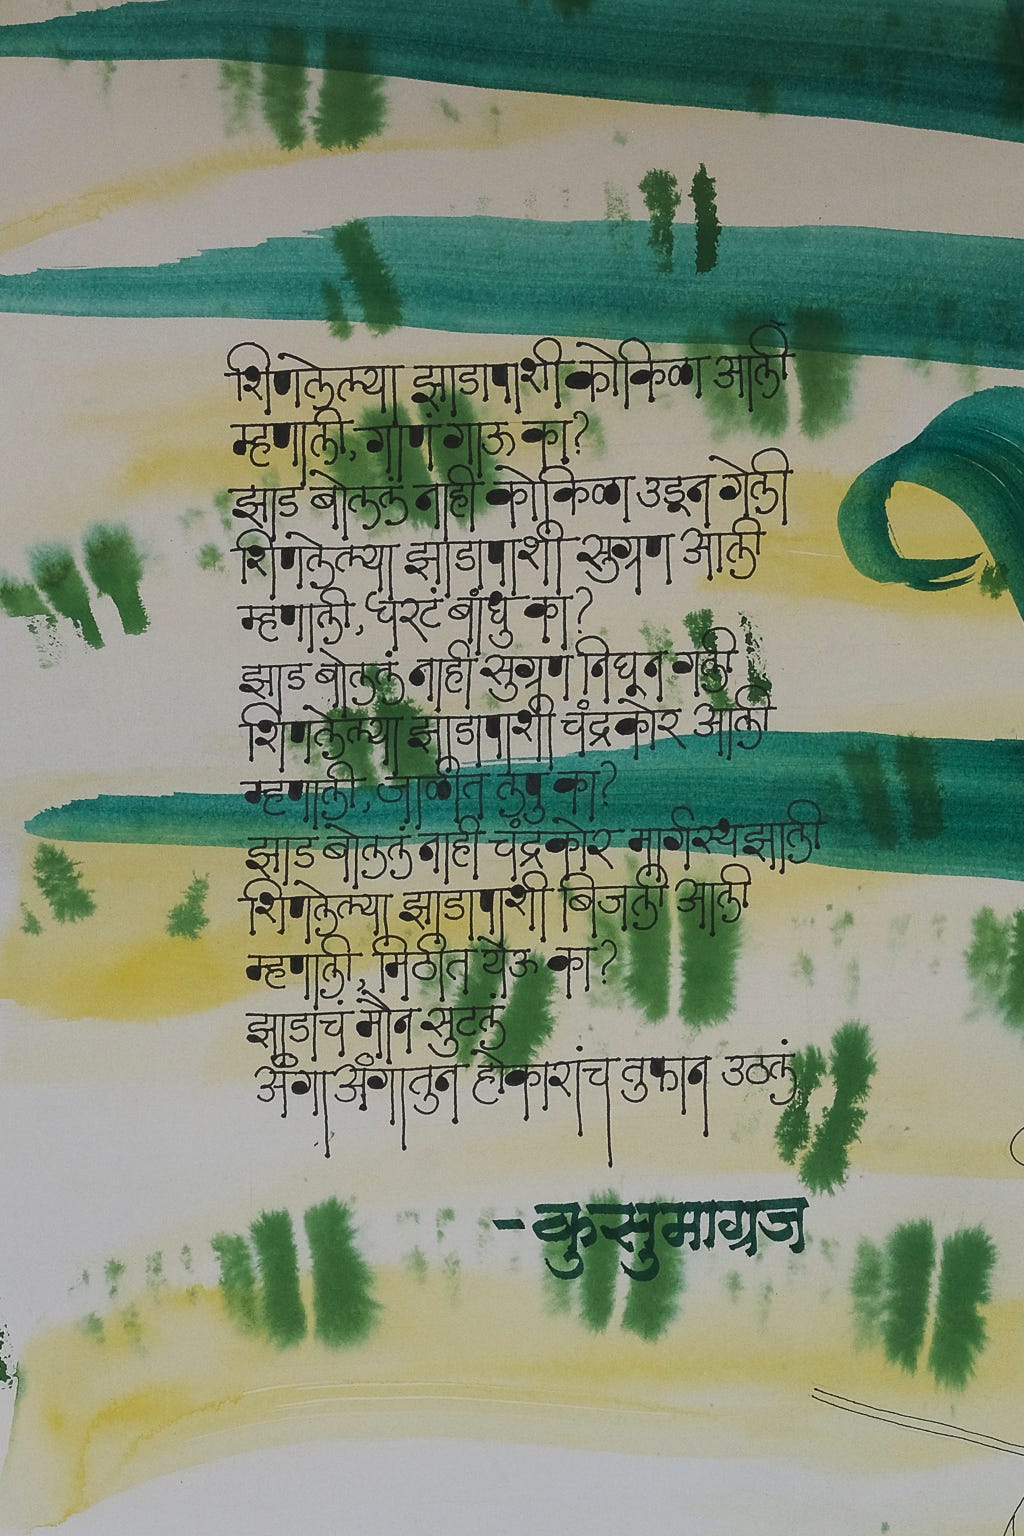 शिणलेल्या झाडापाशी कोकिळा आली
म्हणाली, गाणं गाऊ का?
झाड बोललं नाही कोकिळा उडून गेली
शिणलेल्या झाडापाशी सुग्रण आली
म्हणाली, घरटं बांधु का?
झाड बोललं नाही सुग्रण निघून गेली
शिणलेल्या झाडापाशी चंद्रकोर आली
म्हणाली, जाळीत लपु का?
झाड बोललं नाही चंद्रकोर मार्गस्थ झाली
शिणलेल्या झाडापाशी बिजली आली
म्हणाली, मिठीत येऊ का?
झाडाचं मौन सुटलं
अंगाअंगातुन होकारांच तुफान उठलं
- कुसुमाग्रज